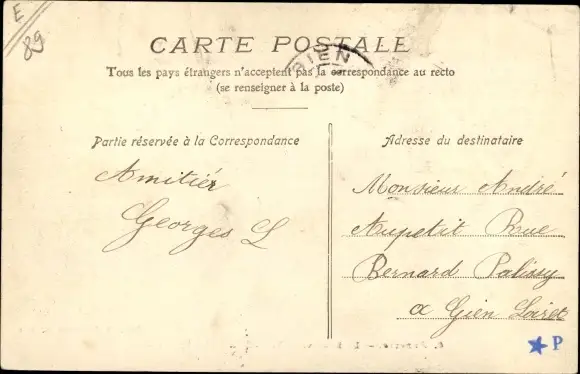 E
89
CARTE POSTALE
GIEN
Tous les pays étrangers n'acceptent pas la correspondance au recto
(se renseigner à la poste)
Partie réservée à la Correspondance
Amitiés
Georges L
Adresse du destinataire
Monsieur André
Aupetit Rue
Bernard Palissy
a Gien Loiret
P